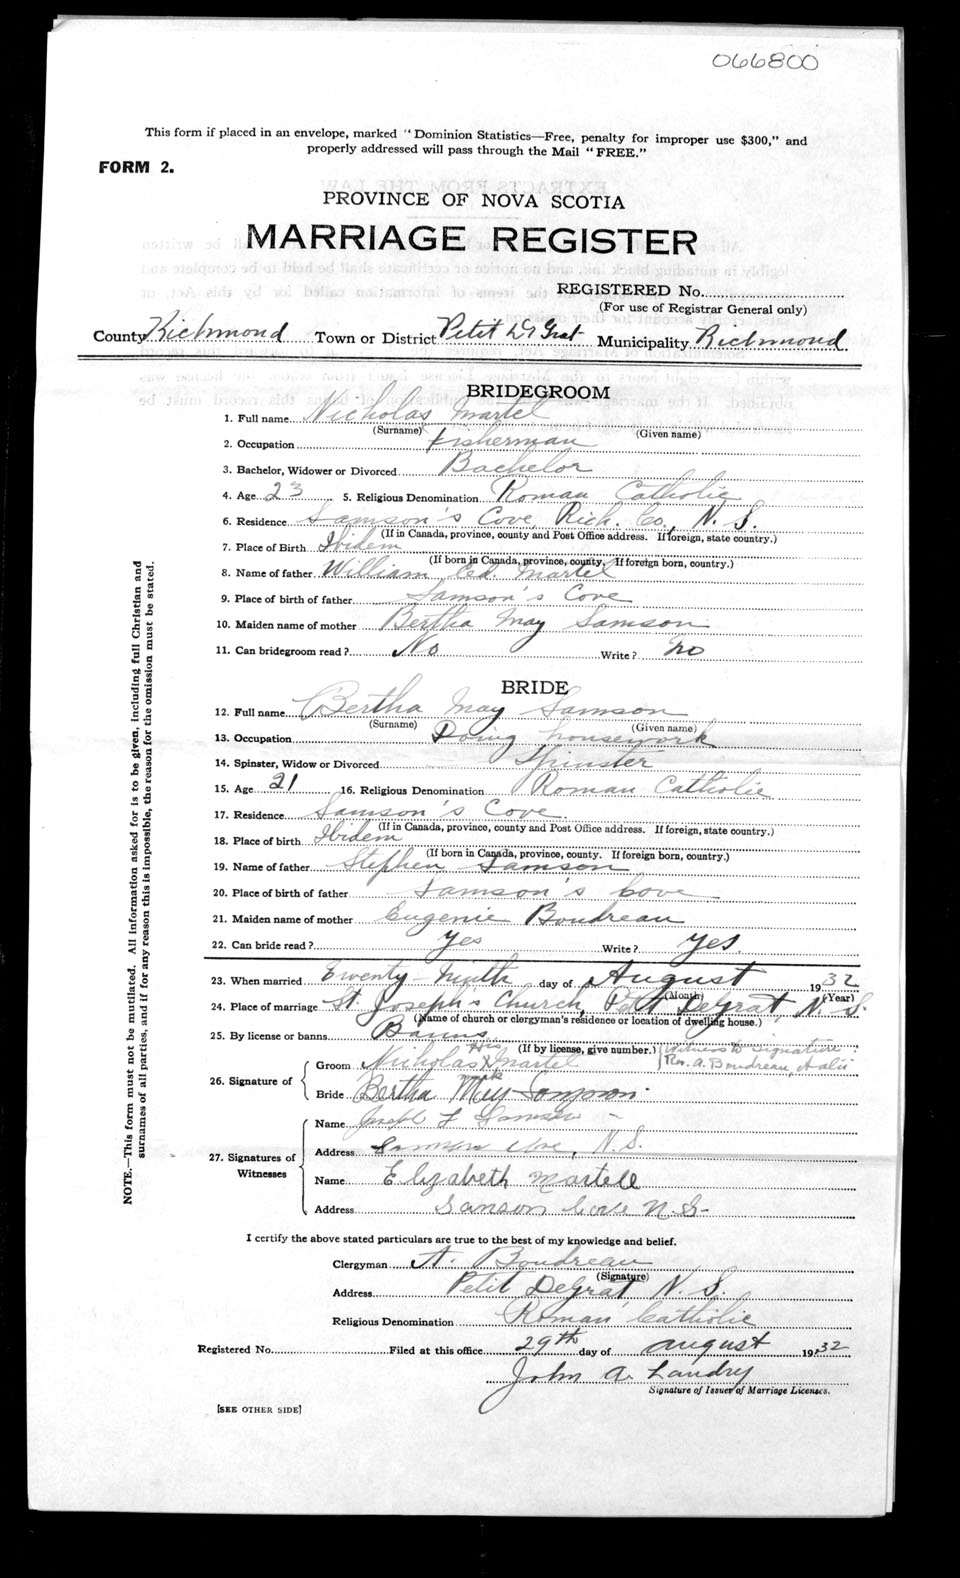 066800
This form if placed in an envelope, marked "Dominion Statistics—Free, penalty for improper use $300," and
properly addressed will pass through the Mail "FREE."
FORM 2.
PROVINCE OF NOVA SCOTIA
MARRIAGE REGISTER
REGISTERED No.
(For use of Registrar General only)
County Richmond Town or District Petit De Grat Municipality Richmond
BRIDEGROOM
1. Full name Nicholas Martel
(Surname) (Given name)
2. Occupation Fisherman
3. Bachelor, Widower or Divorced Bachelor
4. Age 23 5. Religious Denomination Roman Catholic
6. Residence Samson's Cove, Rich. Co., N. S.
(If in Canada, province, county and Post Office address. If foreign, state country.)
7. Place of Birth Ibidem
(If born in Canada, province, county. If foreign born, country.)
8. Name of father William Ed. Martel
9. Place of birth of father Samson's Cove
10. Maiden name of mother Bertha May Samson
11. Can bridegroom read? No Write? No
BRIDE
12. Full name Bertha May Samson
(Surname) (Given name)
13. Occupation Doing housework
14. Spinster, Widow or Divorced Spinster
15. Age 21 16. Religious Denomination Roman Catholic
17. Residence Samson's Cove
(If in Canada, province, county and Post Office address. If foreign, state country.)
18. Place of birth Ibidem
(If born in Canada, province, county. If foreign born, country.)
19. Name of father Stephen Samson
20. Place of birth of father Samson's Cove
21. Maiden name of mother Eugenie Boudreau
22. Can bride read? Yes Write? Yes.
23. When married Twenty-Ninth day of August 1932
(Month) (Year)
24. Place of marriage St. Joseph's Church, Petit DeGrat, N. S.
(Name of church or clergyman's residence or location of dwelling house.)
25. By license or banns Banns
(If by license, give number.) Witness to signature:
Rev. A. Boudreau,
26. Signature of
Groom Nicholas His X mark Martel
Bride Bertha May Sampson
27. Signatures of
Witnesses
Name Joseph F Samson
Address Samson Cove, N. S.
Name Elizabeth Martell
Address Sanson Cove N.S-
I certify the above stated particulars are true to the best of my knowledge and belief.
Clergyman A. Boudreau
(Signature)
Address Petit DeGrat, N. S.
Religious Denomination Roman Catholic
Registered No. Filed at this office 29th day of August 1932
John A. Landry
Signature of Issuer of Marriage Licenses.
[SEE OTHER SIDE]
NOTE.—This form must not be mutilated. All information asked for is to be given, including full Christian and
surnames of all parties, and if for any reason this is impossible, the reason for the omission must be stated.